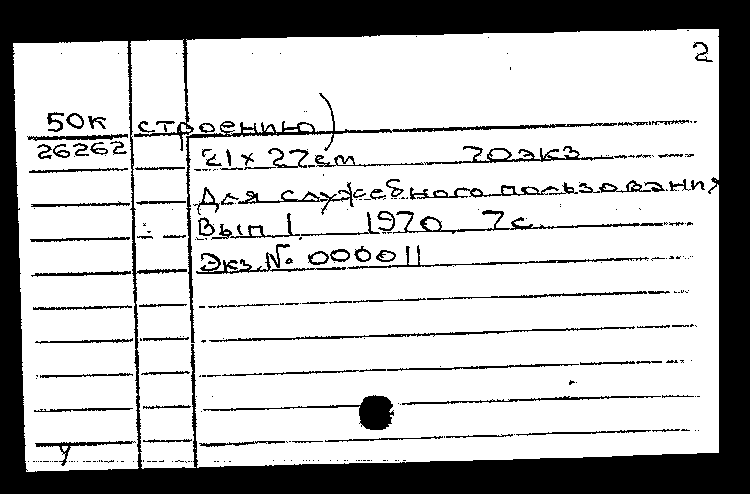 2
50к строению)
26262 21 × 27 cm 70 экз
Для служебного пользования
Вып 1. 1970. 7 с.
Экз. № 000011
у